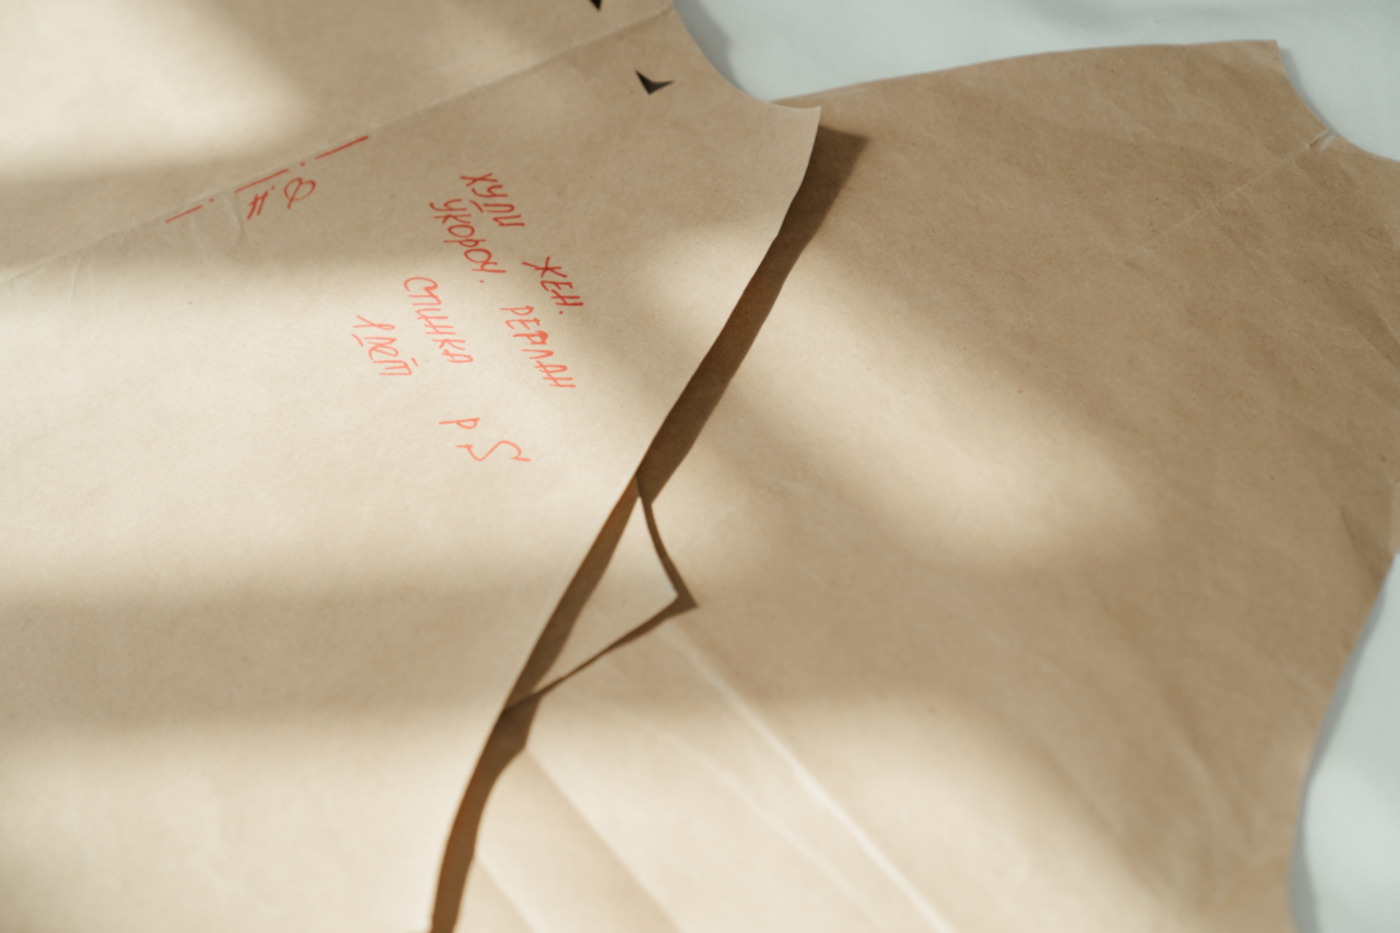 ХУДИ ЖЕН.
УКОРОЧ. РЕГЛАН
СПИНКА
1 ДЕТ
Р S